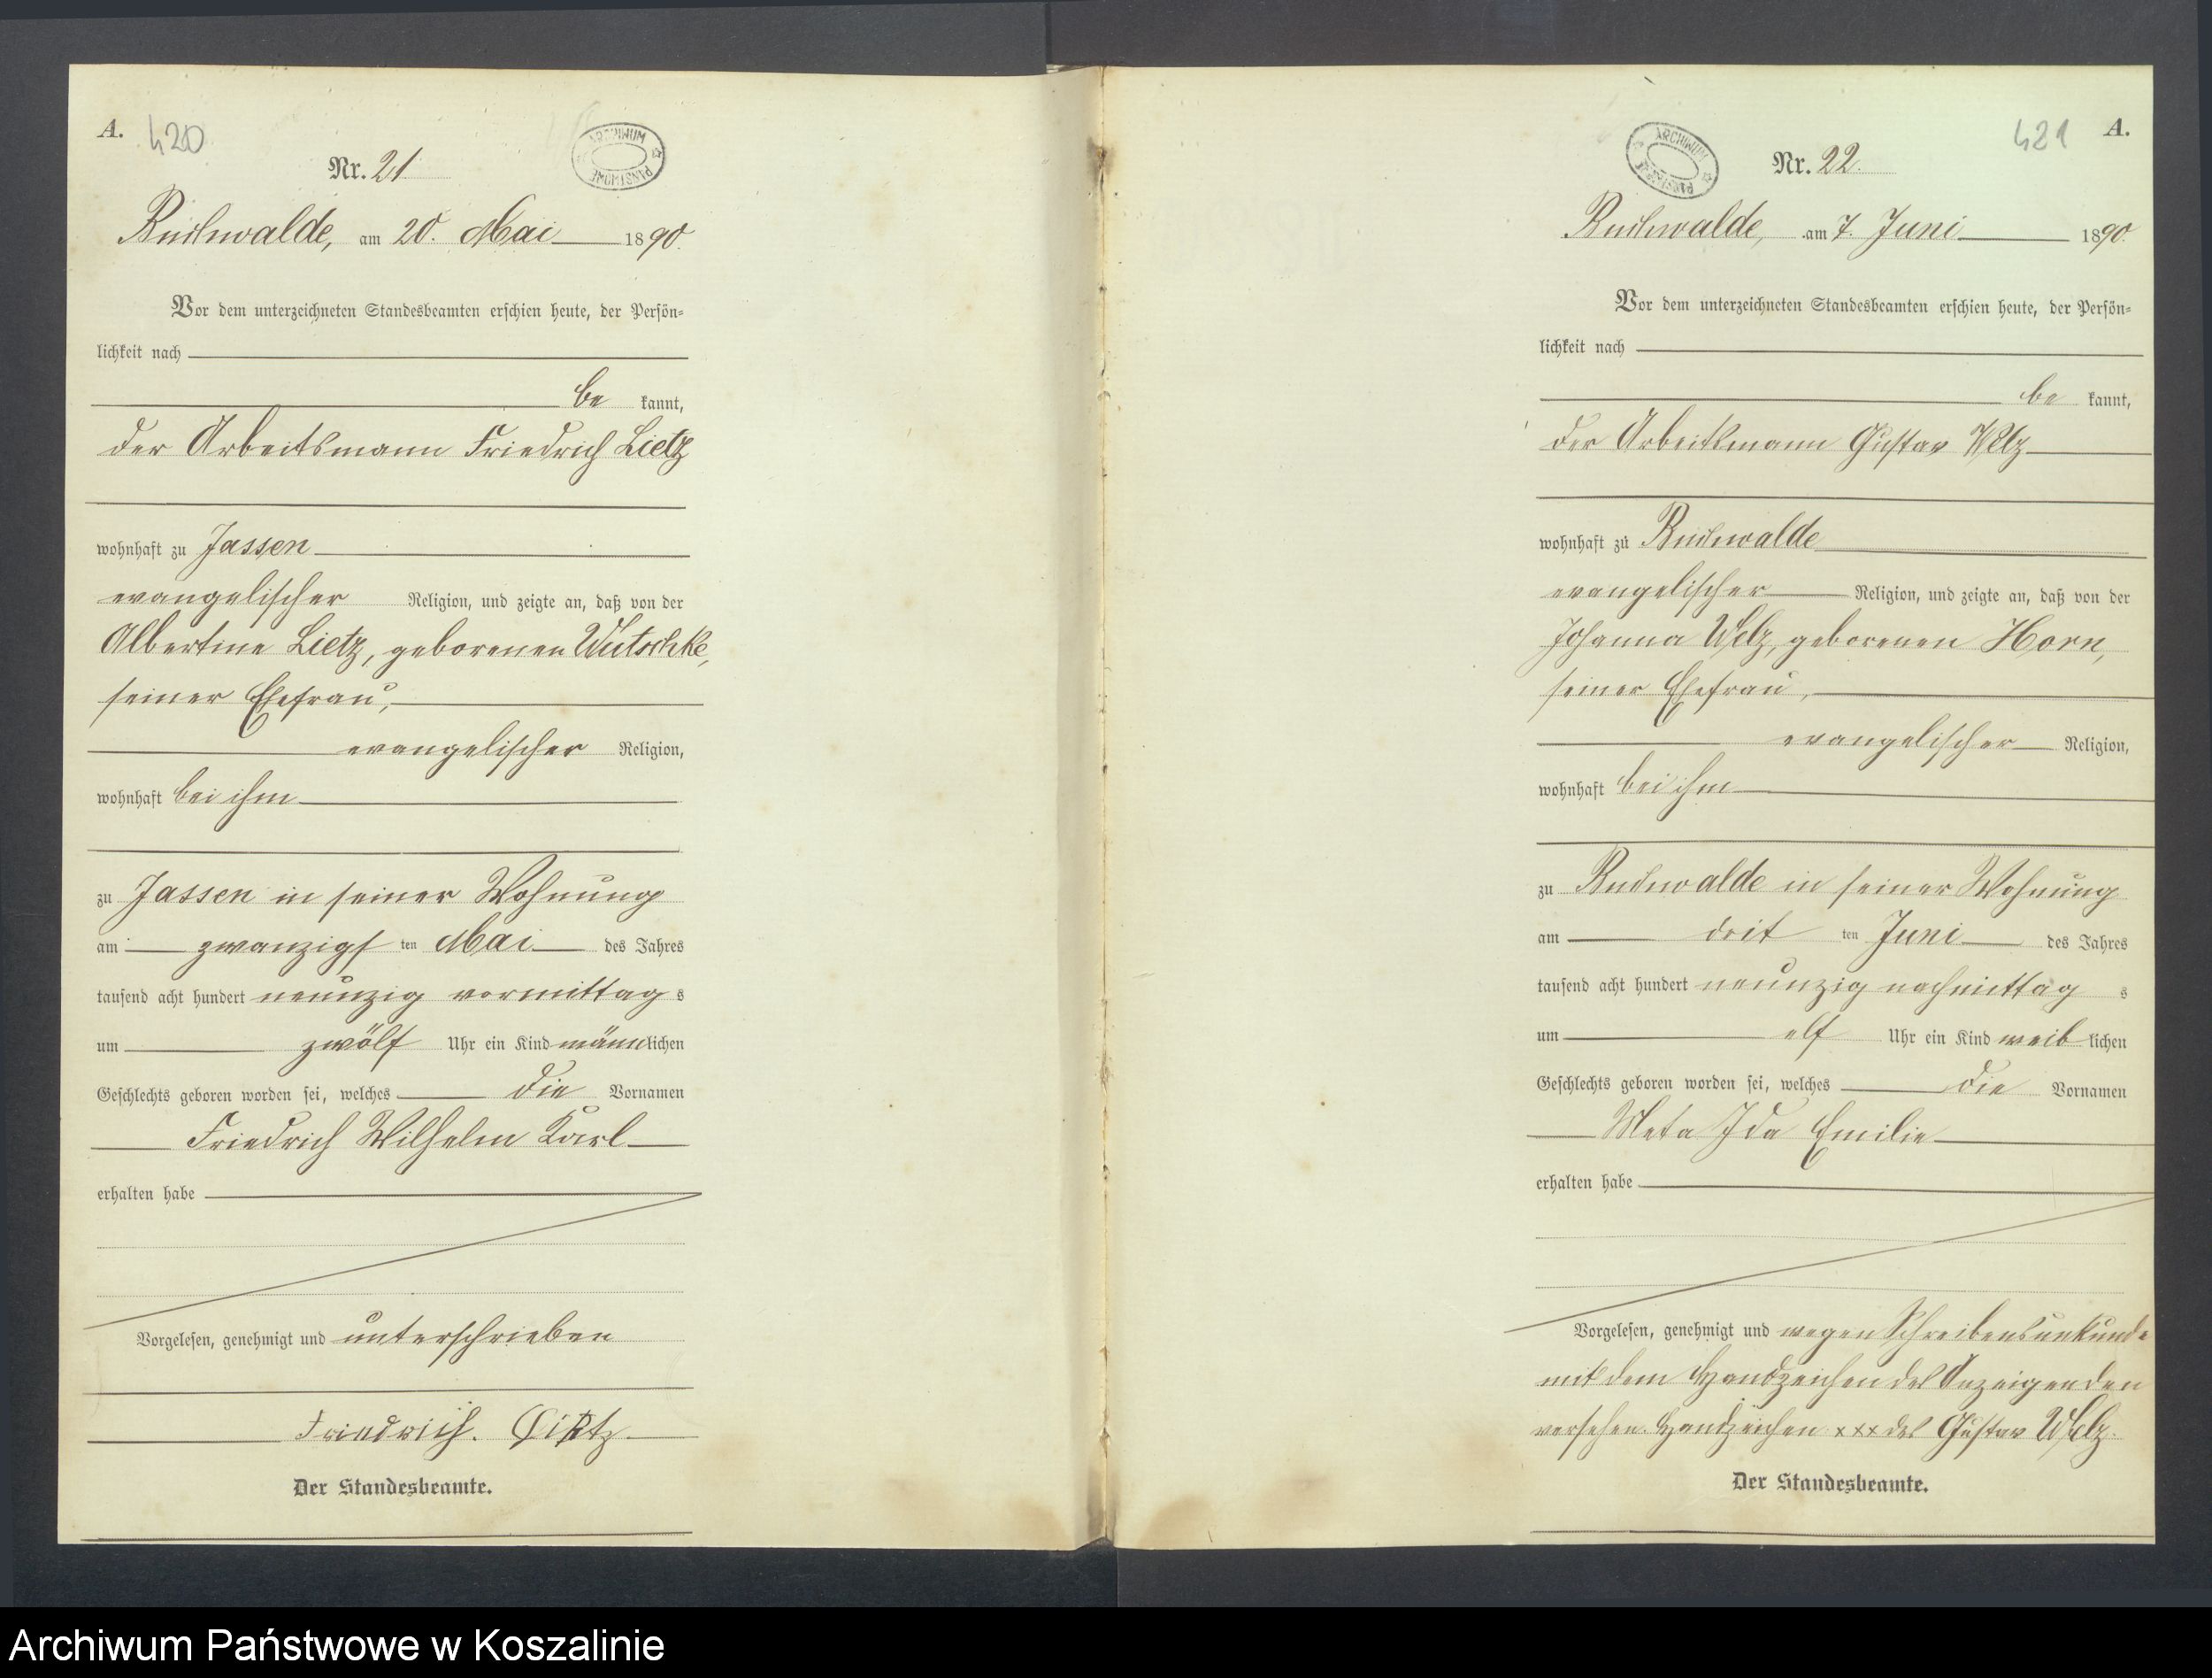 A.
420
ARCHIWUM PAŃSTWOWE
Nr. 21
Buchwalde, am 20. Mai 1890.
Vor dem unterzeichneten Standesbeamten erschien heute, der Persön-
lichkeit nach
be kannt,
der Arbeitsmann Friedrich Lietz
wohnhaft zu Jassen
evangelischer Religion, und zeigte an, daß von der
Albertine Lietz, geborenen Wutschke,
seiner Ehefrau,
evangelischer Religion,
wohnhaft bei ihm
zu Jassen in seiner Wohnung
am zwanzigs ten Mai des Jahres
tausend acht hundert neunzig vormittag s
um zwölf Uhr ein Kind männlichen
Geschlechts geboren worden sei, welches die Vornamen
Friedrich Wilhelm Karl
erhalten habe
Vorgelesen, genehmigt und unterschrieben
Friedrich. Lietz
Der Standesbeamte.
421
A.
ARCHIWUM PAŃSTWOWE
Nr. 22.
Buchwalde, am 7. Juni 1890.
Vor dem unterzeichneten Standesbeamten erschien heute, der Persön-
lichkeit nach
be kannt,
der Arbeitsmann Gustav Welz
wohnhaft zu Buchwalde
evangelischer Religion, und zeigte an, daß von der
Johanna Welz, geborenen Horn,
seiner Ehefrau,
evangelischer Religion,
wohnhaft bei ihm
zu Buchwalde in seiner Wohnung
am drit ten Juni des Jahres
tausend acht hundert neunzig nachmittag s
um elf Uhr ein Kind weib lichen
Geschlechts geboren worden sei, welches die Vornamen
Meta Ida Emilie
erhalten habe
Vorgelesen, genehmigt und wegen Schreibensunkunde
mit dem Handzeichen des Anzeigenden
versehen. Handzeichen xxx des Gustav Welz.
Der Standesbeamte.
Archiwum Państwowe w Koszalinie